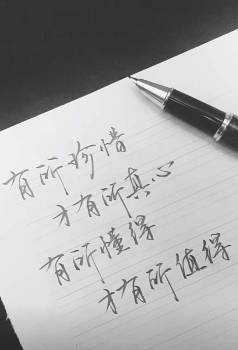 有所珍惜
才有所真心
有所懂得
才有所值得